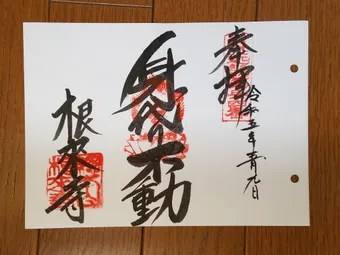 奉拝
令和五年 月九日
身代不動
根来寺